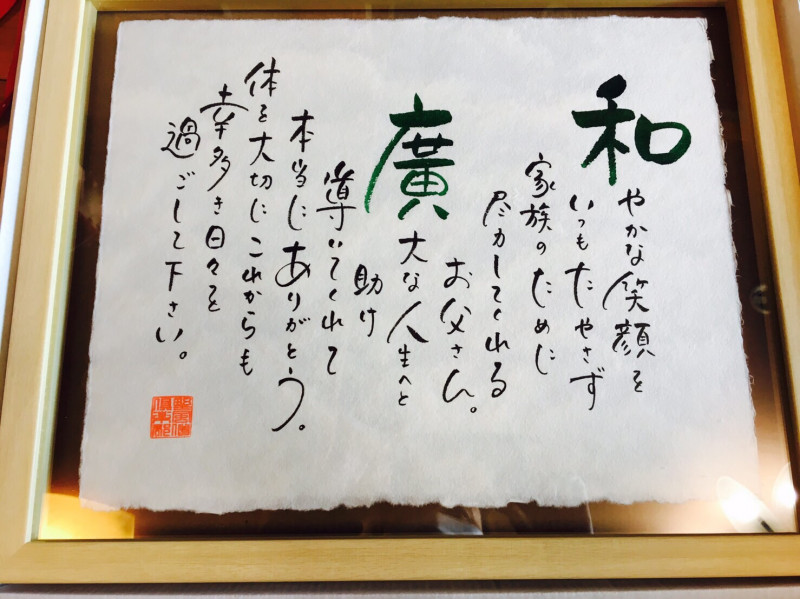 和やかな笑顔を
いつもたやさず
家族のために
尽力してくれる
お父さん。
廣大な人生へと
助け
導いてくれて
本当にありがとう。
体を大切にこれからも
幸多き日々を
過ごして下さい。